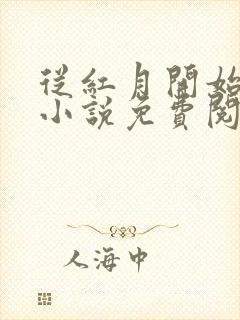 從紅月開始
小說免費閱
人海中